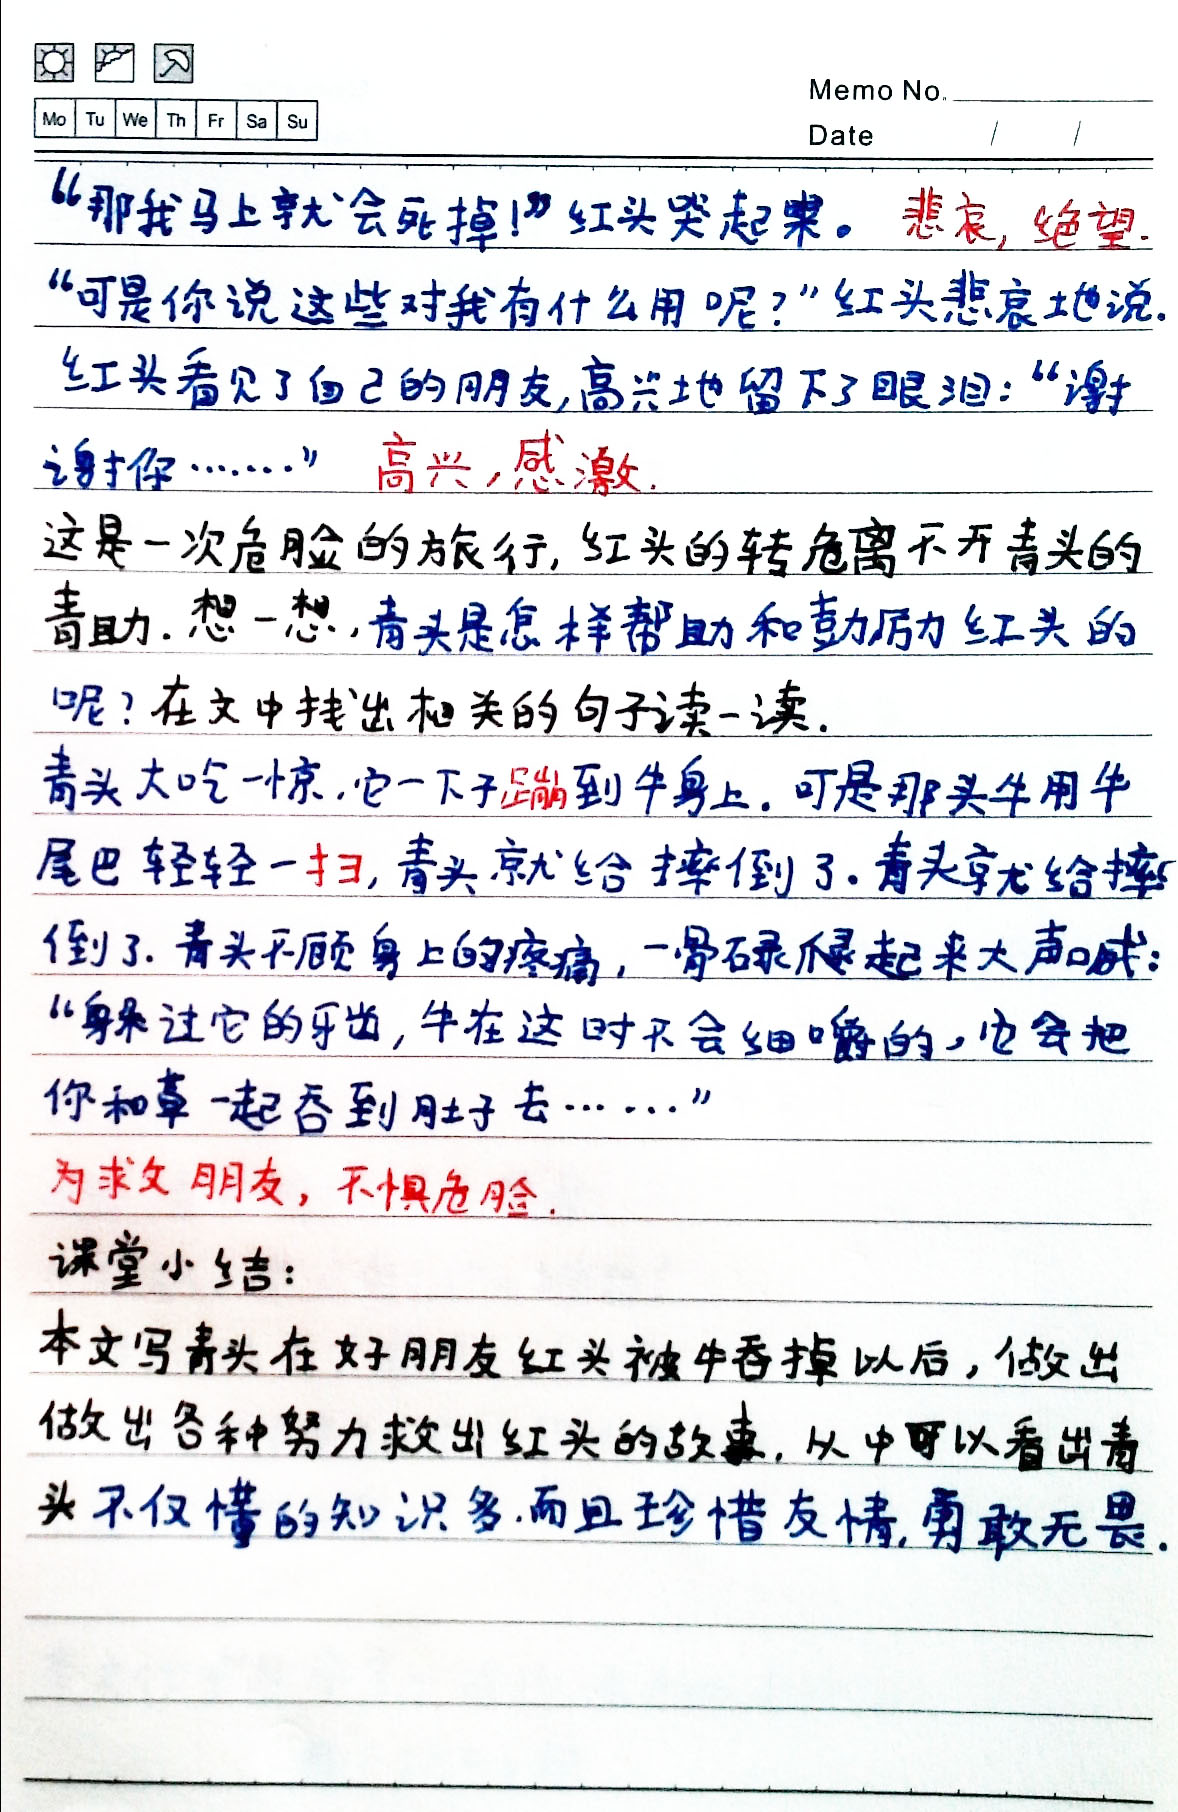 Memo No.
Mo Tu We Th Fr Sa Su
Date / /
“那我马上就会死掉!”红头哭起来。 悲哀,绝望.
“可是你说这些对我有什么用呢?”红头悲哀地说.
红头看见了自己的朋友,高兴地留下了眼泪:“谢
谢你……” 高兴,感激.
这是一次危脸的旅行,红头的转危离不开青头的
青助.想一想,青头是怎样帮助和鼓励红头的
呢?在文中找出相关的句子读一读.
青头大吃一惊,它一下子蹦到牛身上.可是那头牛用牛
尾巴轻轻一扫,青头就给摔倒了.青头就给摔
倒了.青头不顾身上的疼痛,一骨碌爬起来大声喊:
“躲过它的牙齿,牛在这时不会细嚼的,它会把
你和草一起吞到肚子去……”
为求文朋友,不惧危脸.
课堂小结:
本文写青头在好朋友红头被牛吞掉以后,做出
做出各种努力救出红头的故事,从中可以看出青
头不仅懂的知识多.而且珍惜友情,勇敢无畏.